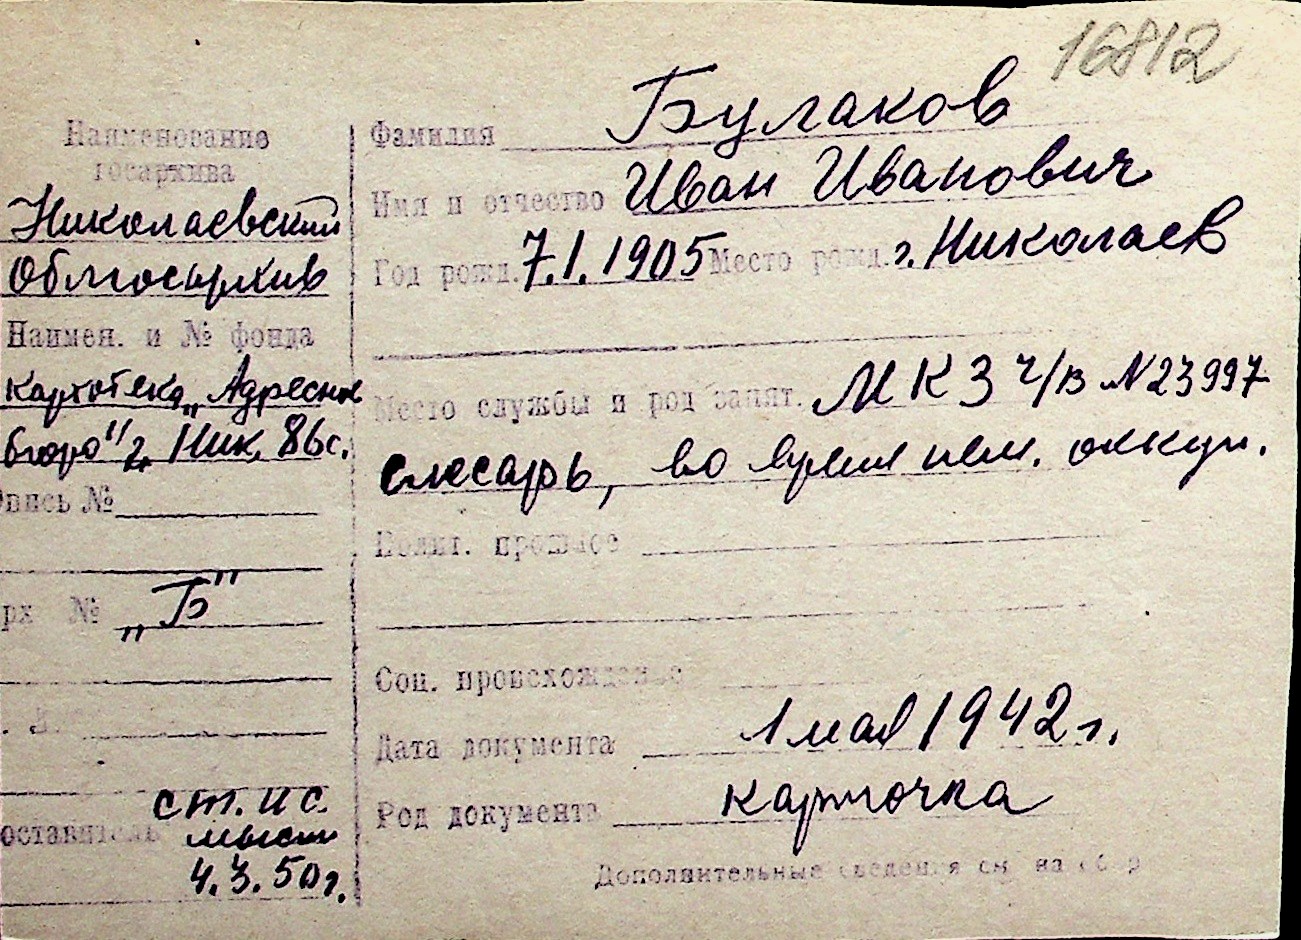 16812
Наименование
госархива
Николаевский
Облгосархив
Наимен. и № фонда
Картотека „Адресное
бюро" г. Ник. 86с.
Опись №
рх №
„Б"
. Л.
ст. и с.
оставитель
4.3.50г.
Фамилия Булаков
Имя и отчество Иван Иванович
Год рожд. 7.1.1905 Место рожд. г. Николаев
Место службы и род занят. МКЗ ч/в №23997
слесарь, во время нем. оккуп.
Полит. прошлое
Соц. происхождение
Дата документа 1 мая 1942 г.
Род документа карточка
Дополнительные сведения см на обор